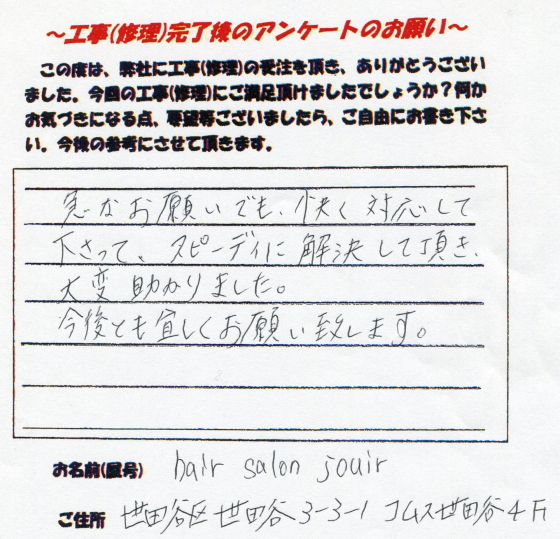 ～工事(修理)完了後のアンケートのお願い～
この度は、弊社に工事(修理)の受注を頂き、ありがとうござい
ました。今回の工事(修理)にご満足頂けましたでしょうか？何か
お気づきになる点、要望等ございましたら、ご自由にお書き下さ
い。今後の参考にさせて頂きます。
急なお願いでも、快く対応して
下さって、スピーディに解決して頂き、
大変助かりました。
今後とも宜しくお願い致します。
お名前(屋号) hair salon jouir
ご住所 世田谷区世田谷3-3-1 コムス世田谷4F